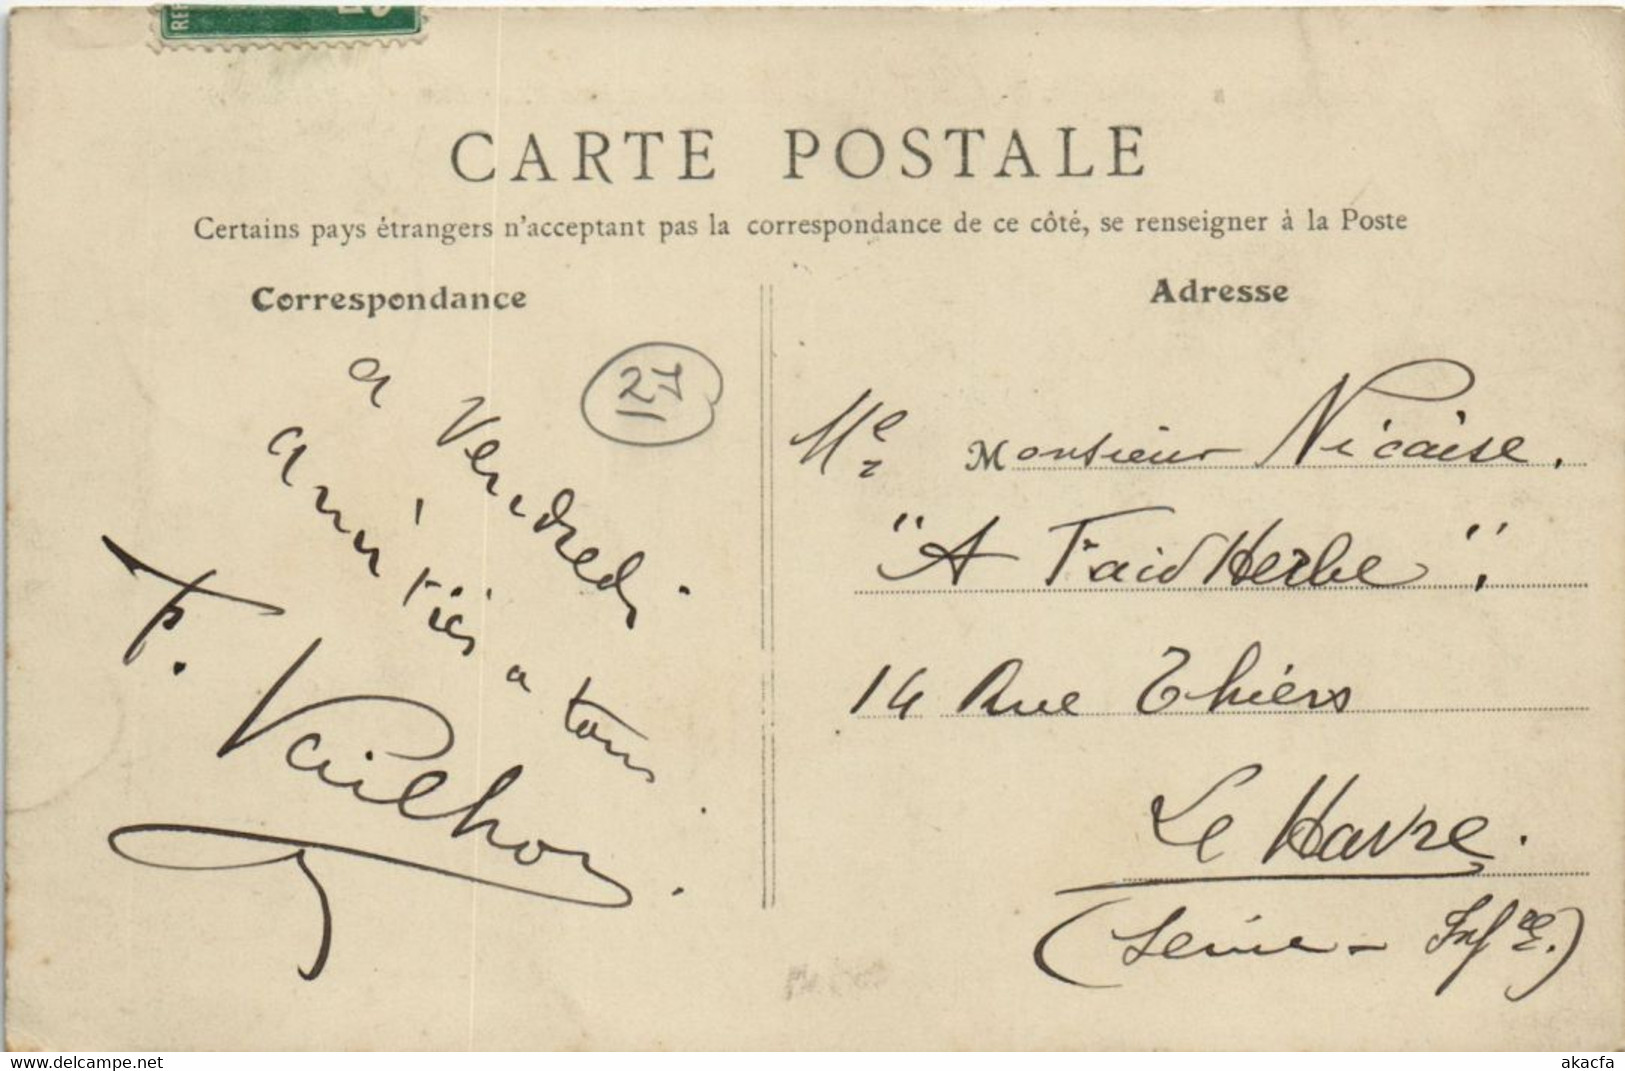 CARTE POSTALE
Certains pays étrangers n'acceptant pas la correspondance de ce côté, se renseigner à la Poste
Correspondance
a Vendredi.
amitiés a tous
F. Vailhon.
27
Adresse
Me Monsieur Nicaise.
"A FaidHerbe".
14 Rue Thiers
Le Havre.
(Seine-Infre.)
delcampe.net
akacfa